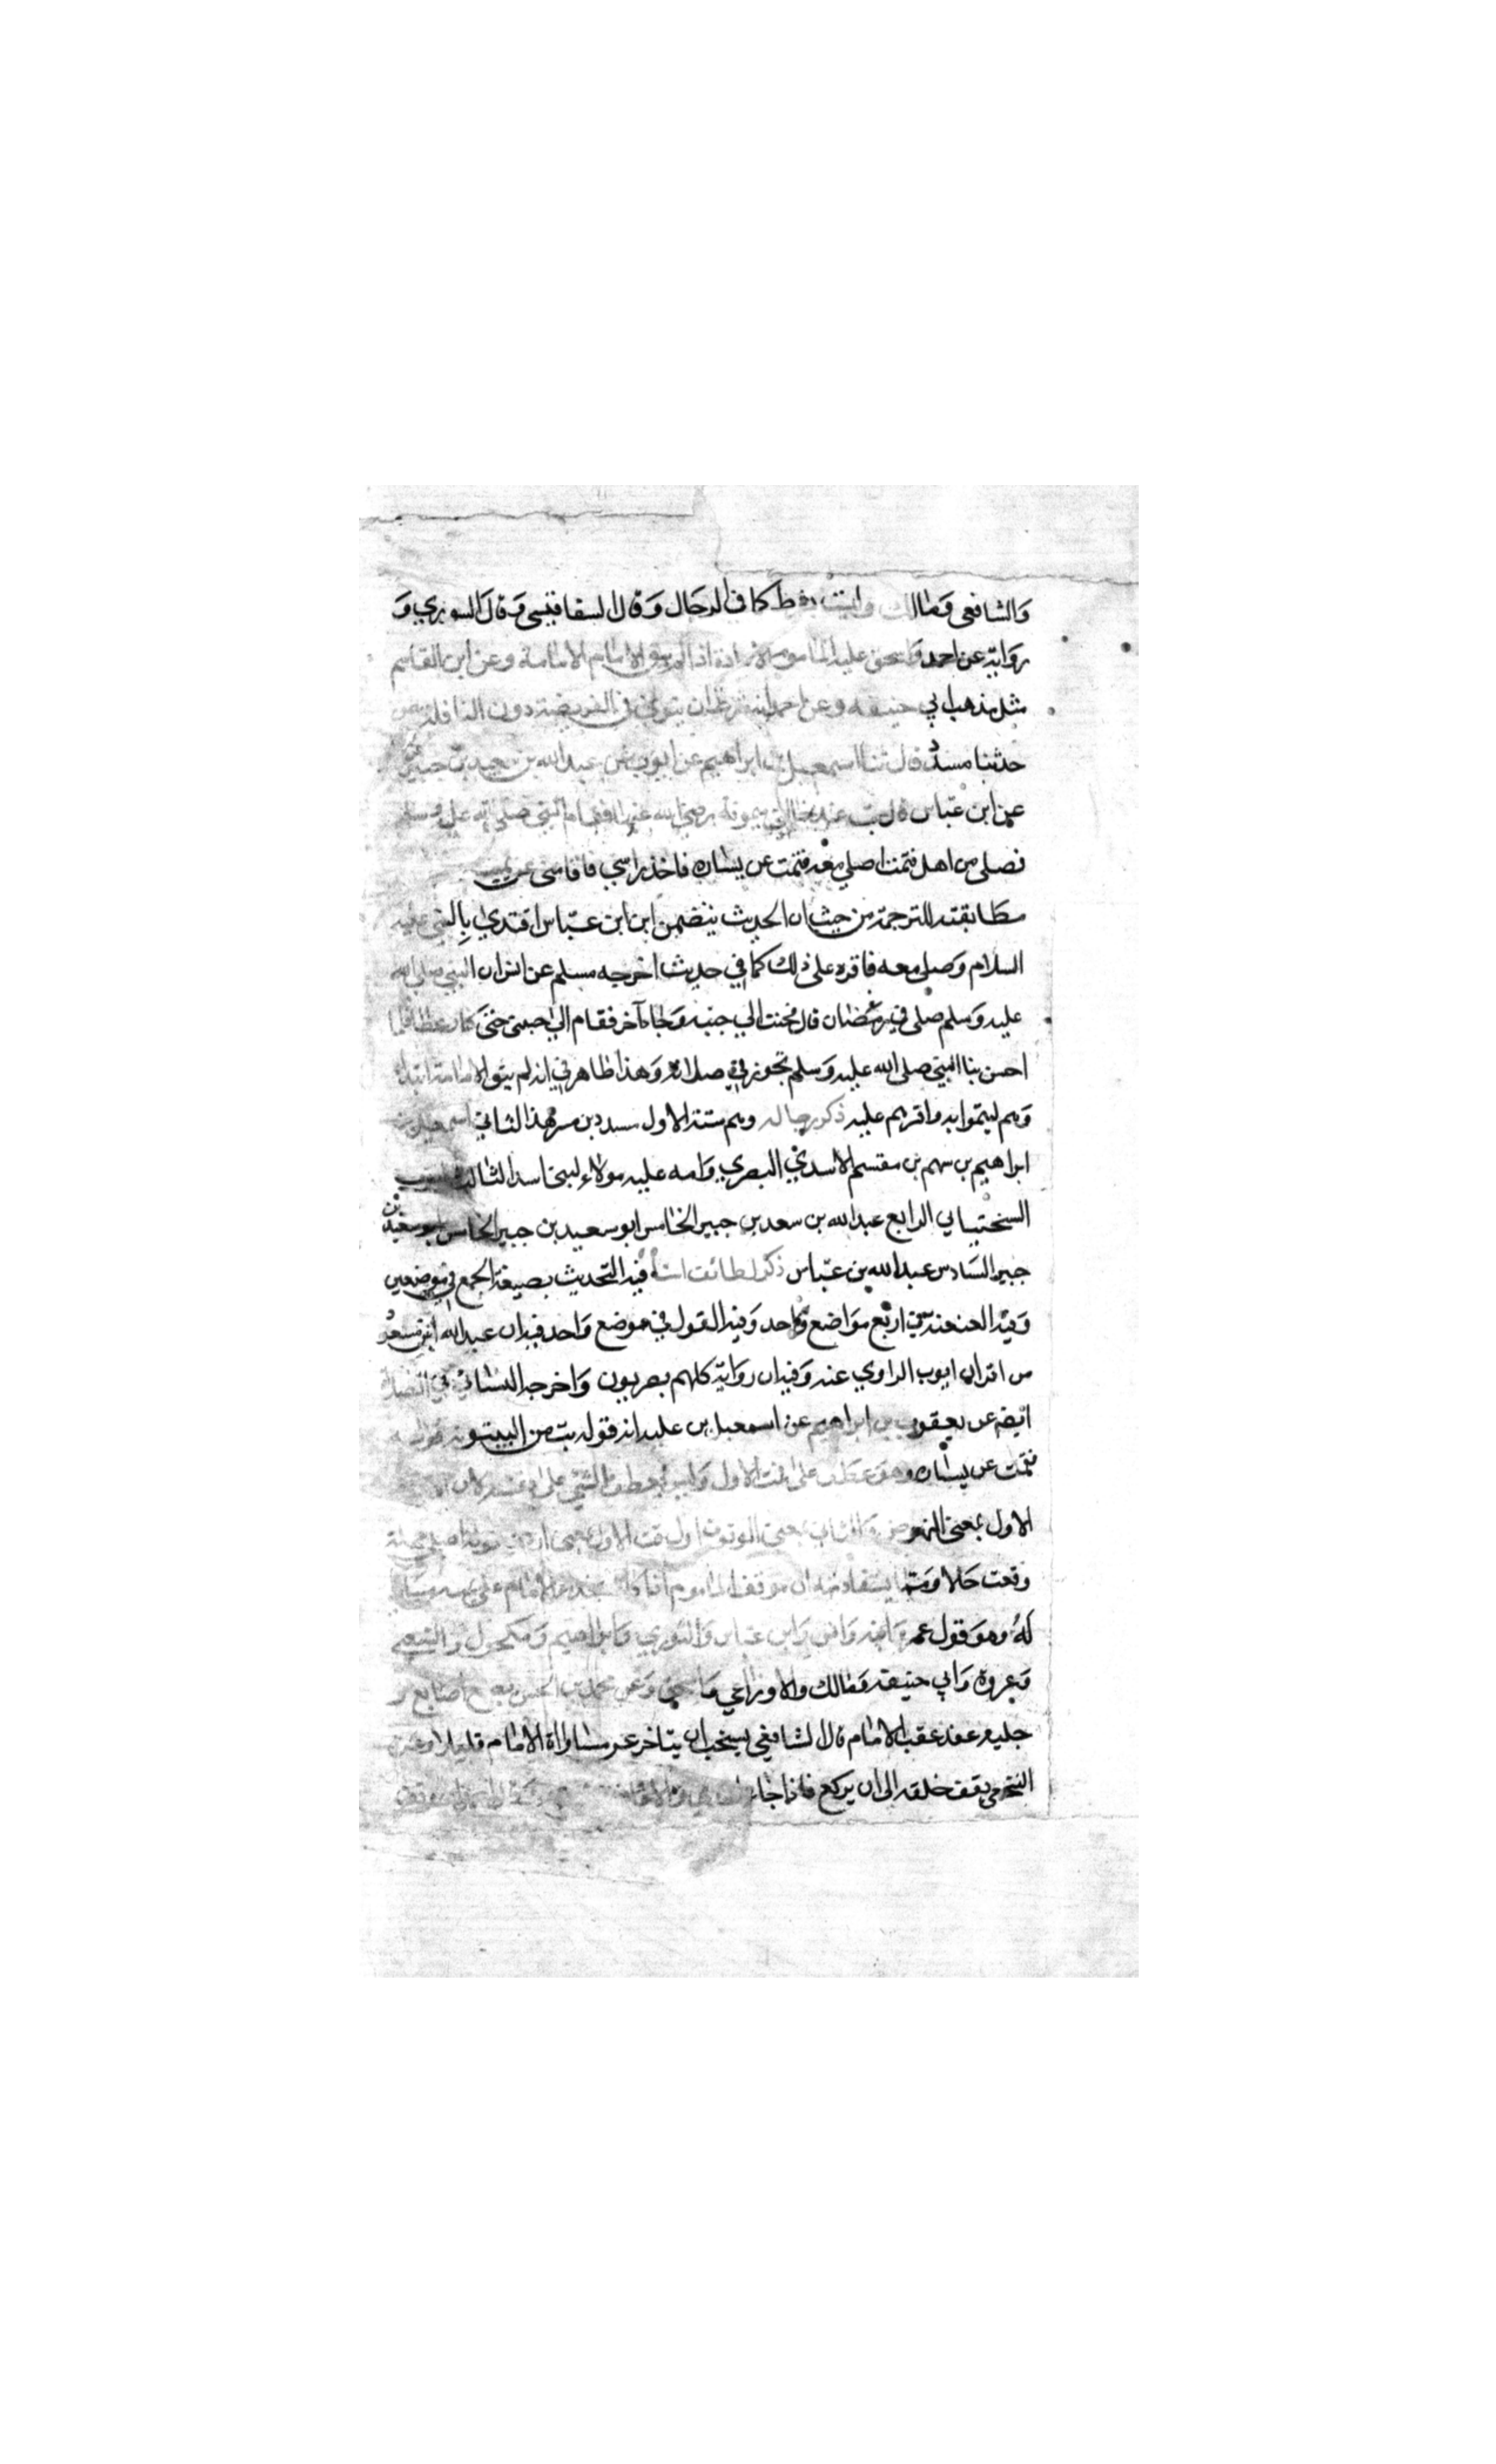 والشافعي ومالك وليث بشرط كما في الرجال وقال السفاقسي وقال الثوري و
رواية عن احمد واسحق على الماموم الاعادة اذا لم ينو الامام الامامة وعن ابن القاسم
مثل مذهب ابي حنيفه وعن احمد انه شرط ان ينوي في الفريضة دون النافلة
حدثنا مسدد قال ثنا اسمعيل بن ابراهيم عن ايوب عن عبد الله بن سعيد بن جبير
عن ابن عباس قال بت عند خالتي ميمونة رضي الله عنها فقام النبي صلى الله عليه وسلم
فصلى من اهل فقمت اصلي معه فقمت عن يساره فاخذ براسي فاقامني عن يمينه
مطابقته للترجمة من حيث ان الحديث يتضمن ابن ابن عباس اقتدي بالنبي عليه
السلام وصلى معه فاقره على ذلك كما في حديث اخرجه مسلم عن انس ان النبي صلى الله
عليه وسلم صلى في رمضان قال فجئت الي جنبه وجاء آخر فقام الي جنبي حتى كنا رهطا فلما
احس بنا النبي صلى الله عليه وسلم تجوز في صلاته وهذا ظاهر في انه لم ينو الامامة ابتداء
وهم ليتموا به واقرهم عليه ذكر رجاله وهم ستة الاول مسدد بن مسرهد الثاني اسمعيل بن
ابراهيم بن سهم بن مقسم الاسدي البصري وامه عليه مولاة لبني اسد الثالث ايوب
السختياني الرابع عبد الله بن سعد بن جبير الخامس ابو سعيد بن جبير الخامس ابو سعيد بن
جبير السادس عبد الله بن عباس ذكر لطائف اسناده فيه التحديث بصيغة الجمع في موضعين
وفيه العنعنة في اربع مواضع واحد وفيه القول في موضع واحد فيه ان عبد الله ابن سعد
من اقران ايوب الراوي عنه وفيه ان رواية كلهم بصريون واخرجه النسائي في الصلاة
ايضا عن يعقوب بن ابراهيم عن اسمعيل بن عليه انه قوله بت من البيتوتة قوله
فقمت عن يساره وهو عطف على قمت الاول وليس بعطف الشي على نفسه لان
الاول بمعنى النهوض والثاني بمعنى الوقوف اول قمت الاول بمعنى اردت قوله اصلي جملة
وقعت حالا ومما يستفاد منه ان موقف الماموم اذا كان بحذاء الامام على يمينه مساويا
له وهو قول عمر وابنه وانس وابن عباس والثوري وابراهيم ومكحول والشعبي
وعروة وابي حنيفة ومالك والاوزاعي واسحق وعن محمد بن الحسن يضع اصابع
جليه عند عقب الامام قال الشافعي يستحب ان يتاخر عن مساواة الامام قليلا وعن
النخعي يقف خلفه الى ان يركع فاذا جاء